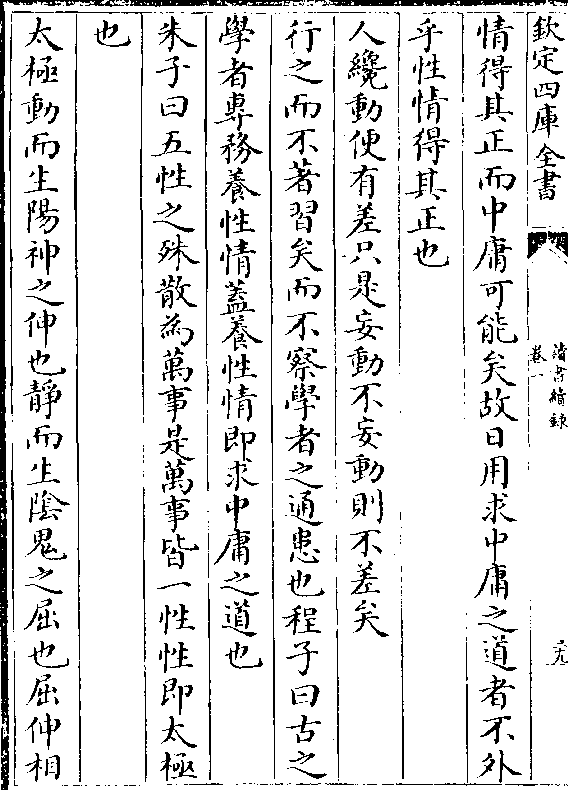 欽定四庫全書
讀書續錄
卷一
二九
情得其正而中庸可能矣故日用求中庸之道者不外
乎性情得其正也
人纔動便有差只是妄動不妄動則不差矣
行之而不著習矣而不察學者之通患也程子曰古之
學者專務養性情葢養性情即求中庸之道也
朱子曰五性之殊散為萬事是萬事皆一性性即太極
也
太極動而生陽神之伸也靜而生陰鬼之屈也屈伸相